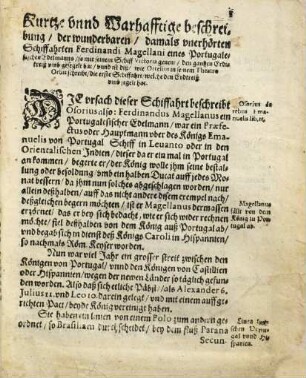 Kurtze vnnd Warhafftige beschrei-
bung / der wunderbaren / damals vnerhörten
Schiffahrten Ferdinandi Magellani eines Portugale-
sischen Edelmanns so mit seinem Schiff Victoria genent / den gantzen Erdt-
kreiß
Orbis schreibt / die erste Schiffart welche den Erdkreiß
DIE vrsach dieser Schiffahrt beschreibt
Osorius also: Ferdinandus Magellanus ein
Portugalesischer Edelmann / war ein Præfe-
ctus oder Hauptmann vber des Königs Ema-
nuelis von Portugal Schiff in Leuanto oder in den
Orientalischen Indien / dieser da er ein mal in Portugal
ankommen / begerte er / der König wolle jhm seine bestal-
lung oder besoldung vmb ein halben Ducat auff jedes Mo-
nat bessern / da jhm nun solches abgeschlagen worden / nur
allein deshalben / auff das nicht andere diesem exempel nach /
deßgleichen begern möchten / ist er Magellanus dermassen
erzörnet / das er bey sich bedacht / wie er sich wider rechnen
möchte / fiel deßhalben von dem König auß Portugal ab /
vnd begab sich in dienst deß Königs Caroli in Hispannien /
so nachmals Röm. Keyser worden.
Nun war viel Jahr ein grosser streit zwischen den
Königen von Portugal / vnnd den Königen von Castillien
oder Hispannien / wegen der newen Länder so täglich gefun-
den worden. Also daß sich etliche Päbst / als Alexander 6.
Julius 11. vnd Leo 10. darein gelegt / vnd mit einem auffge-
richten Pact / beyde König vereinigt haben.
Sie haben ein linien von einem Polo zum andern ge-
ordnet / so Brasiliam durchscheidet / bey dem fluß Parana
Secun-
Osorius de
rebus Ema-
nuelis lib. 11.
Magellanus
fält von dem
König in Por-
tugal ab.
Linea zwi-
schen Portu-
gal vnd His-
panien.